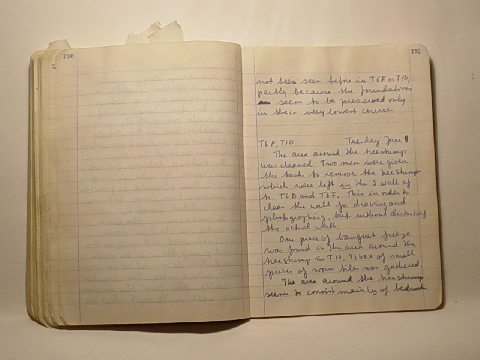 234
235
not been seen before in T6F or T10,
partly because the foundations
seem to be preserved only
in their very lowest course.
T6F, T10 Tuesday June 9
The area around the treestump
was cleaned. Two men were given
the task to remove the treestumps
which were left in the S wall of
to T6D and T6F. This in order to
clean the wall for drawing and
photographing, but without disturbing
the actual wall.
One piece of banquet frieze
was found in the area around the
treestump in T10. 1 box of small
pieces of worn tiles was gathered.
The area around the treestump
seem to consist mainly of bedrock.